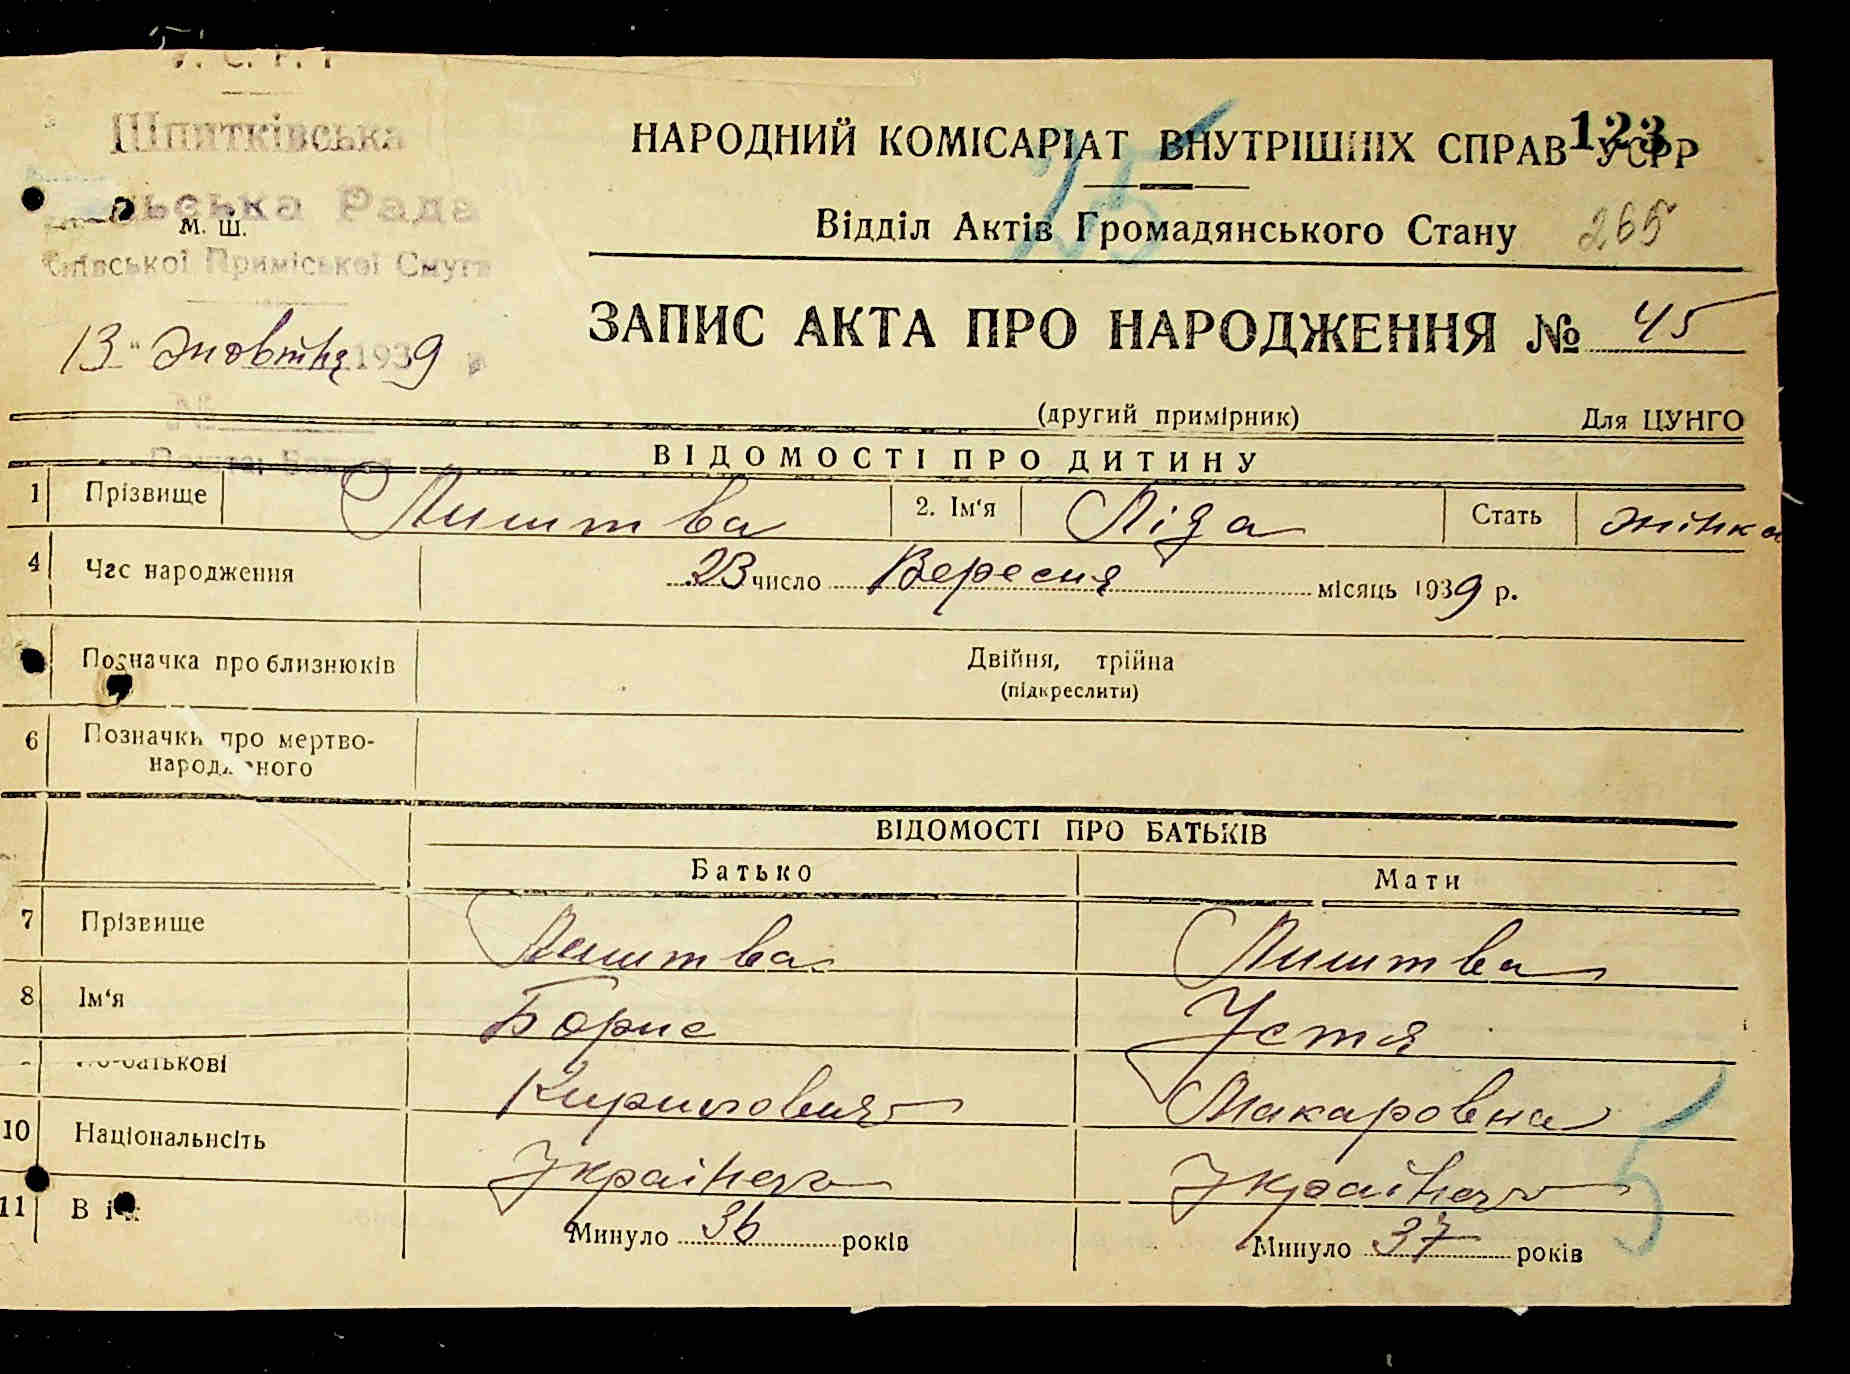 У. С. Р. Р
Шпитківська
льська Рада
м. ш.
Київської Приміської Смуги
13 " жовтня 1939 р
№
НАРОДНИЙ КОМІСАРІАТ ВНУТРІШНІХ СПРАВ УСРР
123
15
Відділ Актів Громадянського Стану
265
ЗАПИС АКТА ПРО НАРОДЖЕННЯ № 45
(другий примірник) Для ЦУНГО
ВІДОМОСТІ ПРО ДИТИНУ
1 Прізвище Лиштва 2. Ім'я Ліда Стать жінка
4 Час народження 23 число Вересня місяць 1939 р.
Позначка про близнюків Двійня, трійна
(підкреслити)
6 Позначки про мертво-
народженого
ВІДОМОСТІ ПРО БАТЬКІВ
Батько Мати
7 Прізвище Лиштва Лиштва
8 Ім'я Борис Устя
По-батькові Макаровна
10 Національнсіть Українець Українець
11 Вік Минуло 36 років Минуло 37 років
5